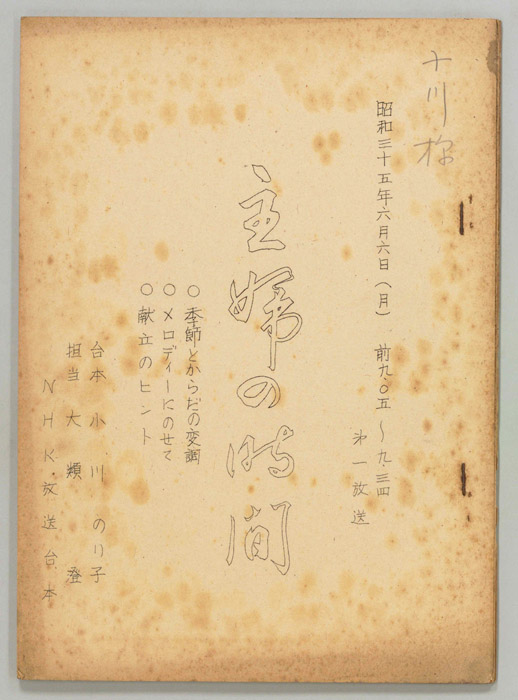 十川様
昭和三十五年六月六日（月）　前九・〇五～九・三四
㐧一放送
主婦の時间
○季節とからだの変調
○メロディーにのせて
○献立のヒント
台本　小川　のり子
担当　大類　澄
NHK放送台本